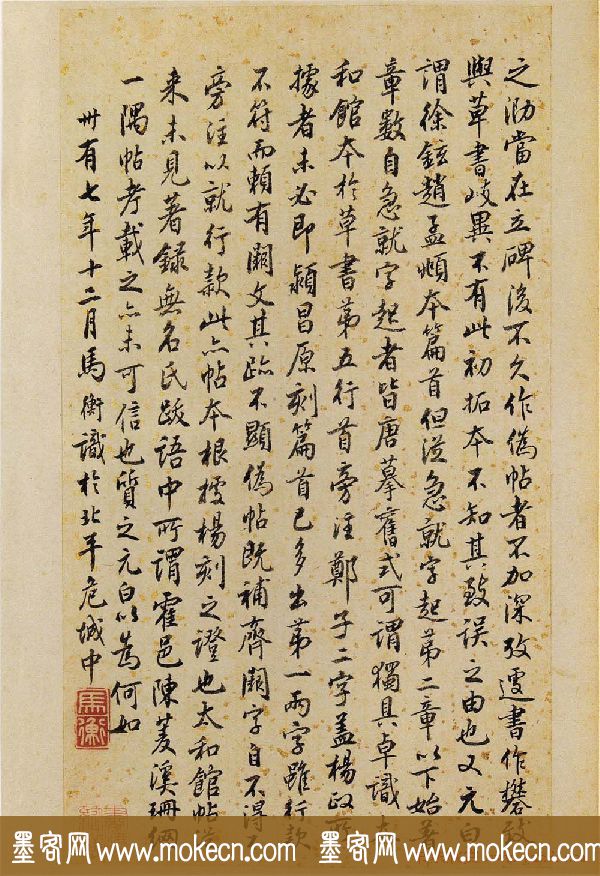 之泐當在立碑後不久作偽帖者不加深攷遽書作礬致
與草書歧異不有此初拓本不知其致誤之由也又元白
謂徐鉉趙孟頫本篇首但從急就字起第二章以下始著
章數自急就字起者皆唐摹舊式可謂獨具卓識
和館本於草書第五行首旁注鄭子二字蓋楊政所
據者未必即潁昌原刻篇首已多出第一兩字雖行款
不符而頗有闕文其跡不顯偽帖既補齊闕字自不得
旁注以就行款此亦帖本根據楊刻之證也太和館帖
來未見著錄無名氏跋語中所謂霍邑陳菱溪珊網
一隅帖考載之亦未可信也質之元白以為何如
卅有七年十二月馬衡識於北平危城中
馬衡
墨客网 www.mokecn.com 墨客网 www.mokecn.com